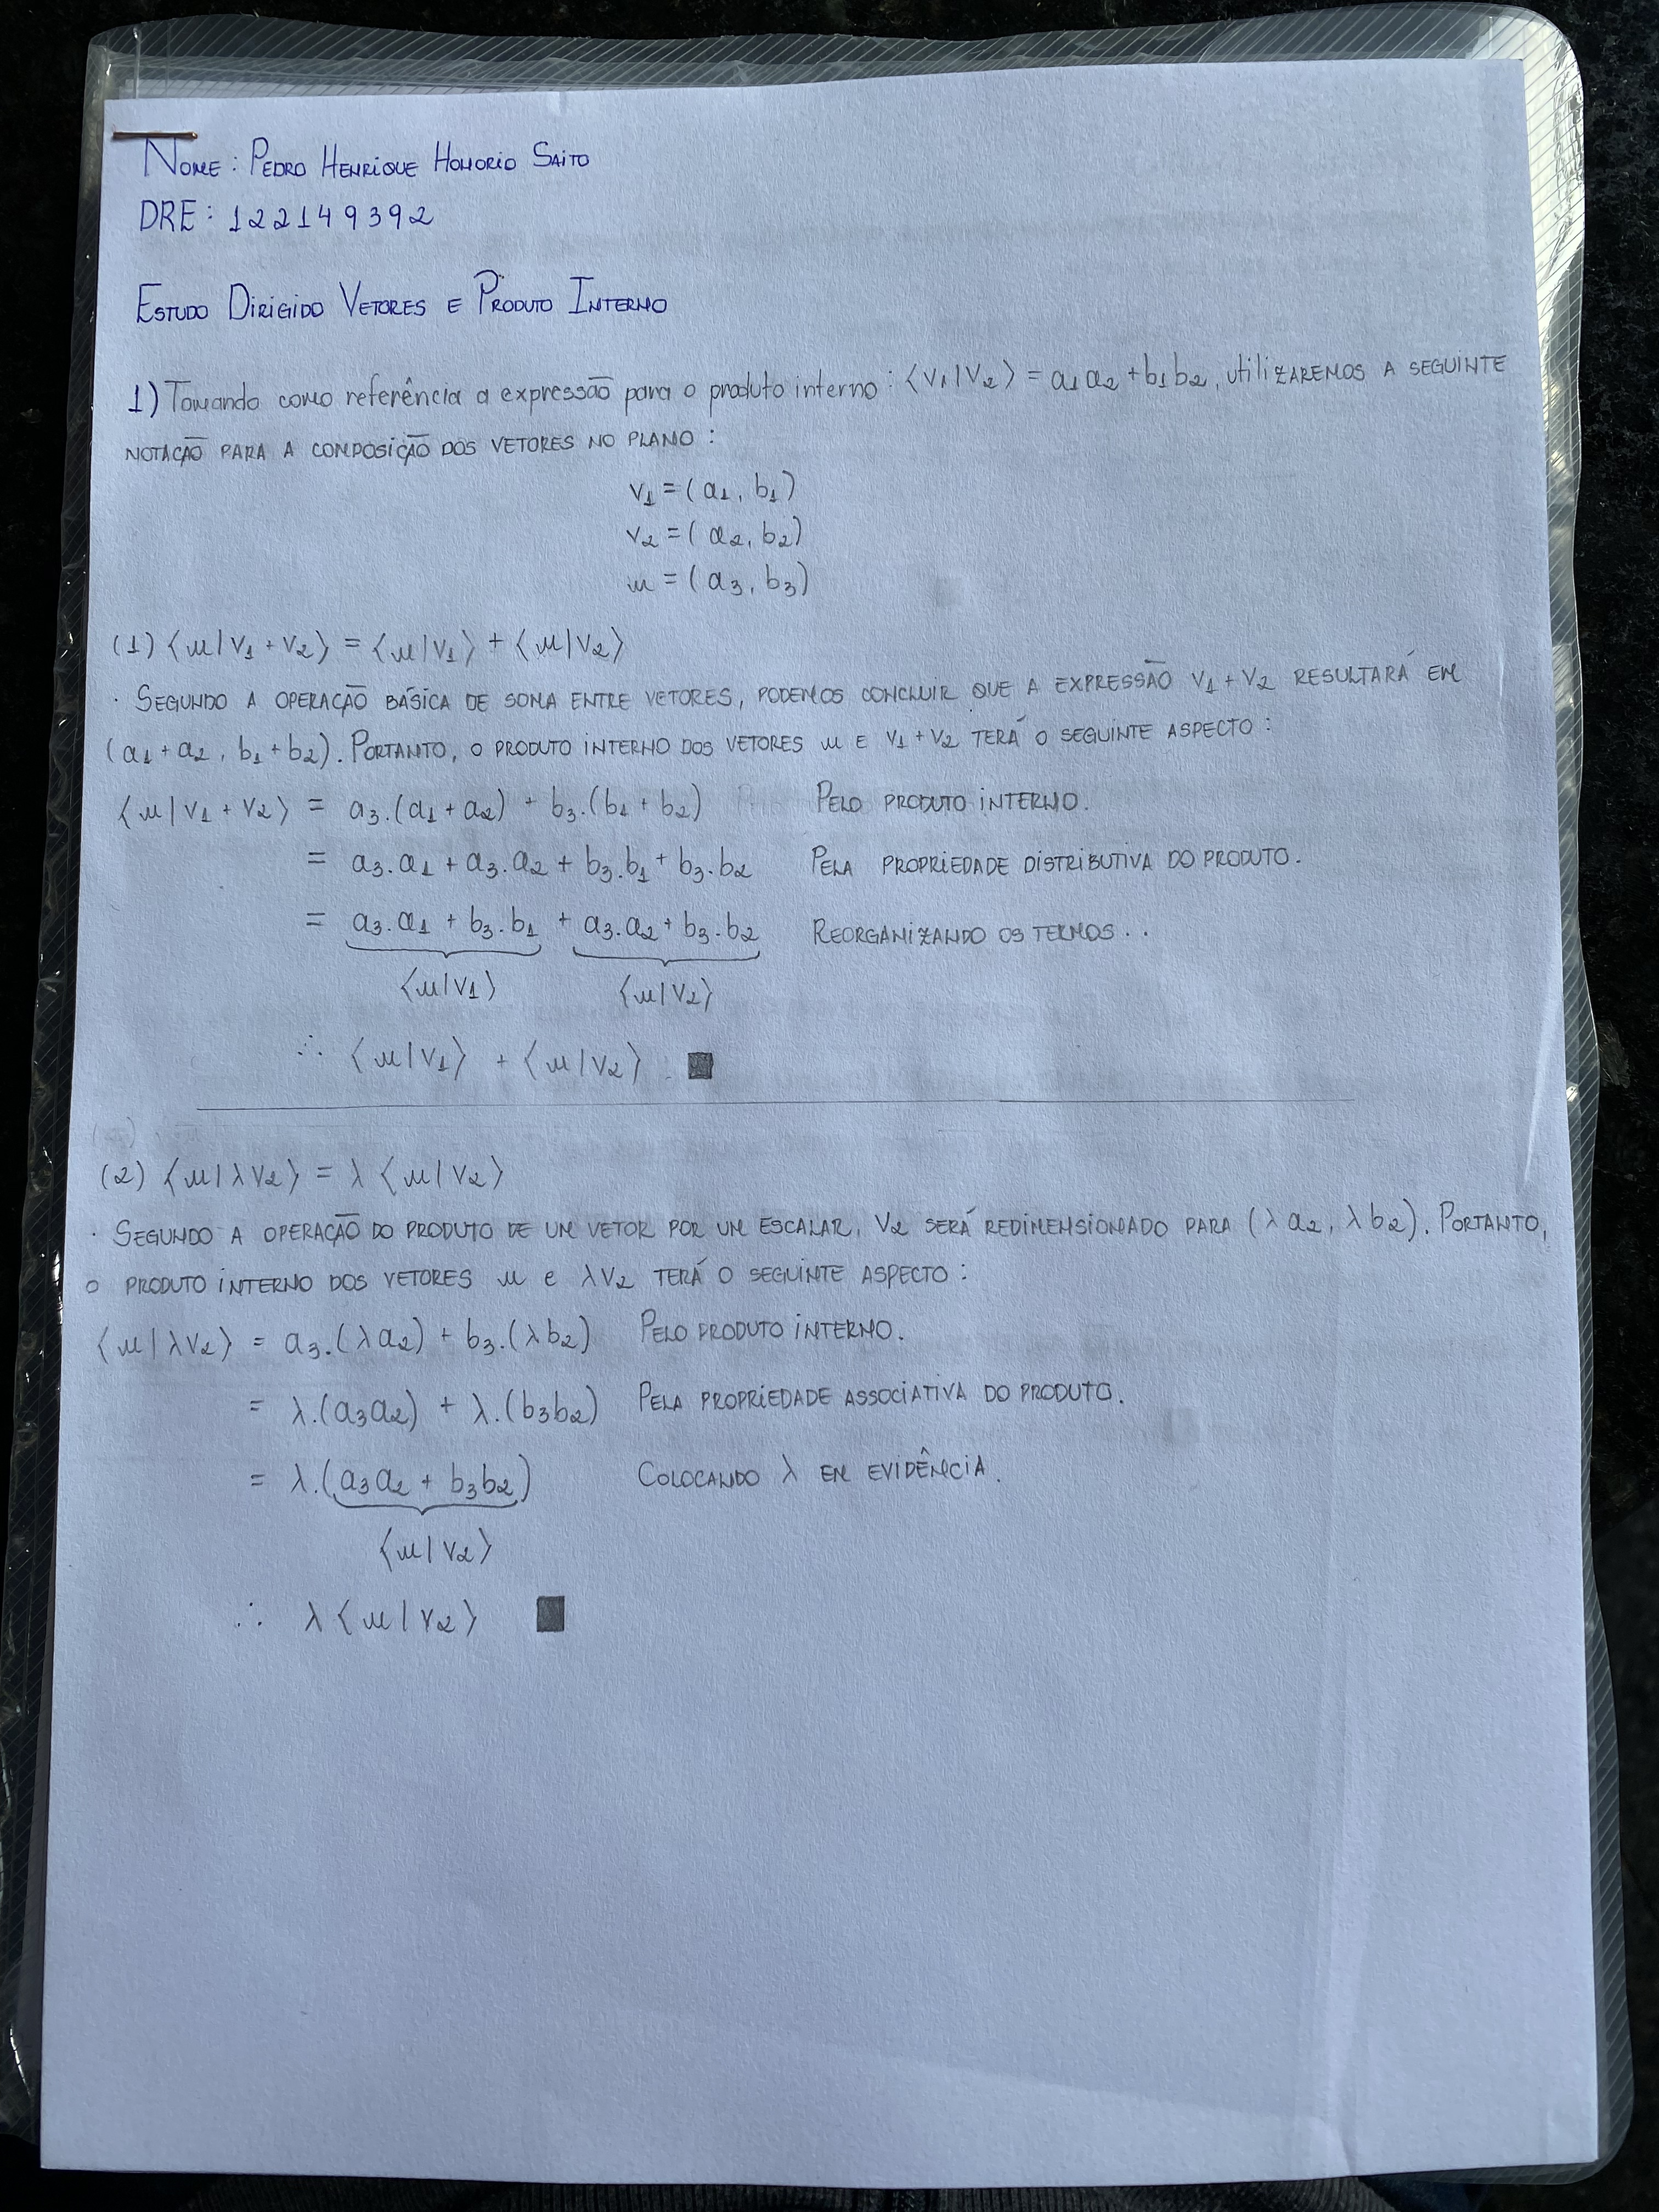 NOME: PEDRO HENRIQUE HONORIO SAITO
DRE: 122149392
ESTUDO DIRIGIDO VETORES E PRODUTO INTERNO
1) Tomando como referência a expressão para o produto interno: ⟨v₁|v₂⟩ = a₁a₂ + b₁b₂, utiliZAREMOS A SEGUINTE
NOTAÇÃO PARA A COMPOSIÇÃO DOS VETORES NO PLANO:
v₁ = (a₁, b₁)
v₂ = (a₂, b₂)
u = (a₃, b₃)
(1) ⟨u|v₁ + v₂⟩ = ⟨u|v₁⟩ + ⟨u|v₂⟩
· SEGUNDO A OPERAÇÃO BÁSICA DE SOMA ENTRE VETORES, PODEMOS CONCLUIR QUE A EXPRESSÃO v₁ + v₂ RESULTARÁ EM
(a₁ + a₂, b₁ + b₂). PORTANTO, O PRODUTO INTERNO DOS VETORES u E v₁ + v₂ TERÁ O SEGUINTE ASPECTO:
⟨u|v₁ + v₂⟩ = a₃.(a₁ + a₂) + b₃.(b₁ + b₂) PELO PRODUTO INTERNO.
= a₃.a₁ + a₃.a₂ + b₃.b₁ + b₃.b₂ PELA PROPRIEDADE DISTRIBUTIVA DO PRODUTO.
= a₃.a₁ + b₃.b₁ + a₃.a₂ + b₃.b₂ REORGANIZANDO OS TERMOS..
⟨u|v₁⟩ ⟨u|v₂⟩
∴ ⟨u|v₁⟩ + ⟨u|v₂⟩. ■
(2) ⟨u|λv₂⟩ = λ⟨u|v₂⟩
· SEGUNDO A OPERAÇÃO DO PRODUTO DE UM VETOR POR UM ESCALAR, V₂ SERÁ REDIMENSIONADO PARA (λa₂, λb₂). PORTANTO,
O PRODUTO INTERNO DOS VETORES u e λv₂ TERÁ O SEGUINTE ASPECTO:
⟨u|λv₂⟩ = a₃.(λa₂) + b₃.(λb₂) PELO PRODUTO INTERNO.
= λ.(a₃a₂) + λ.(b₃b₂) PELA PROPRIEDADE ASSOCIATIVA DO PRODUTO.
= λ.(a₃a₂ + b₃b₂) COLOCANDO λ EM EVIDÊNCIA.
⟨u|v₂⟩
∴ λ⟨u|v₂⟩ ■